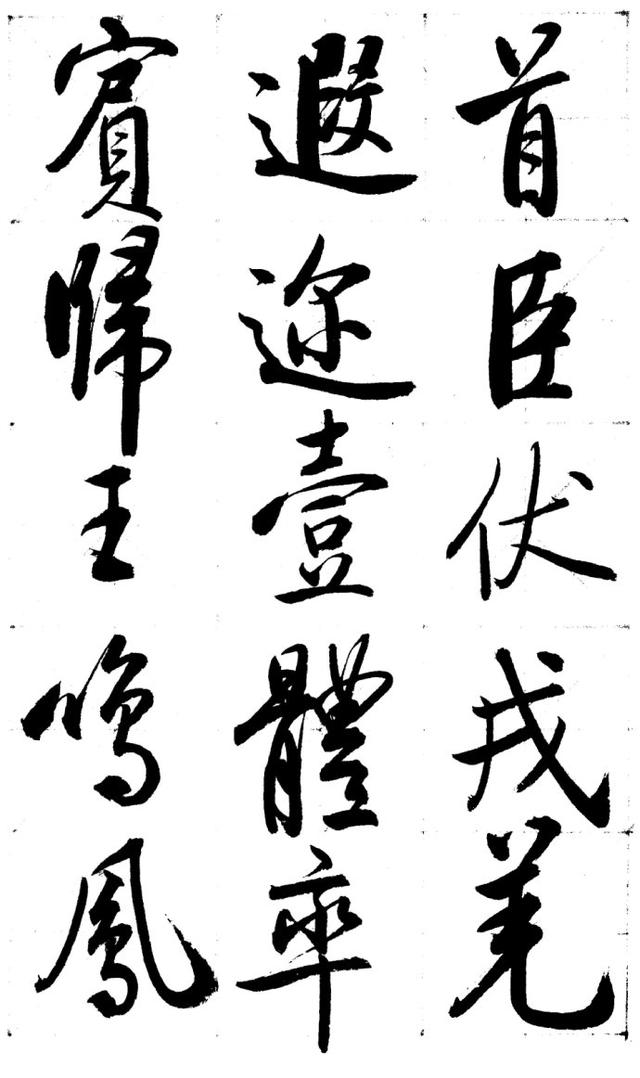 首臣伏戎羌
遐迩壹體率
賓歸王鳴鳳